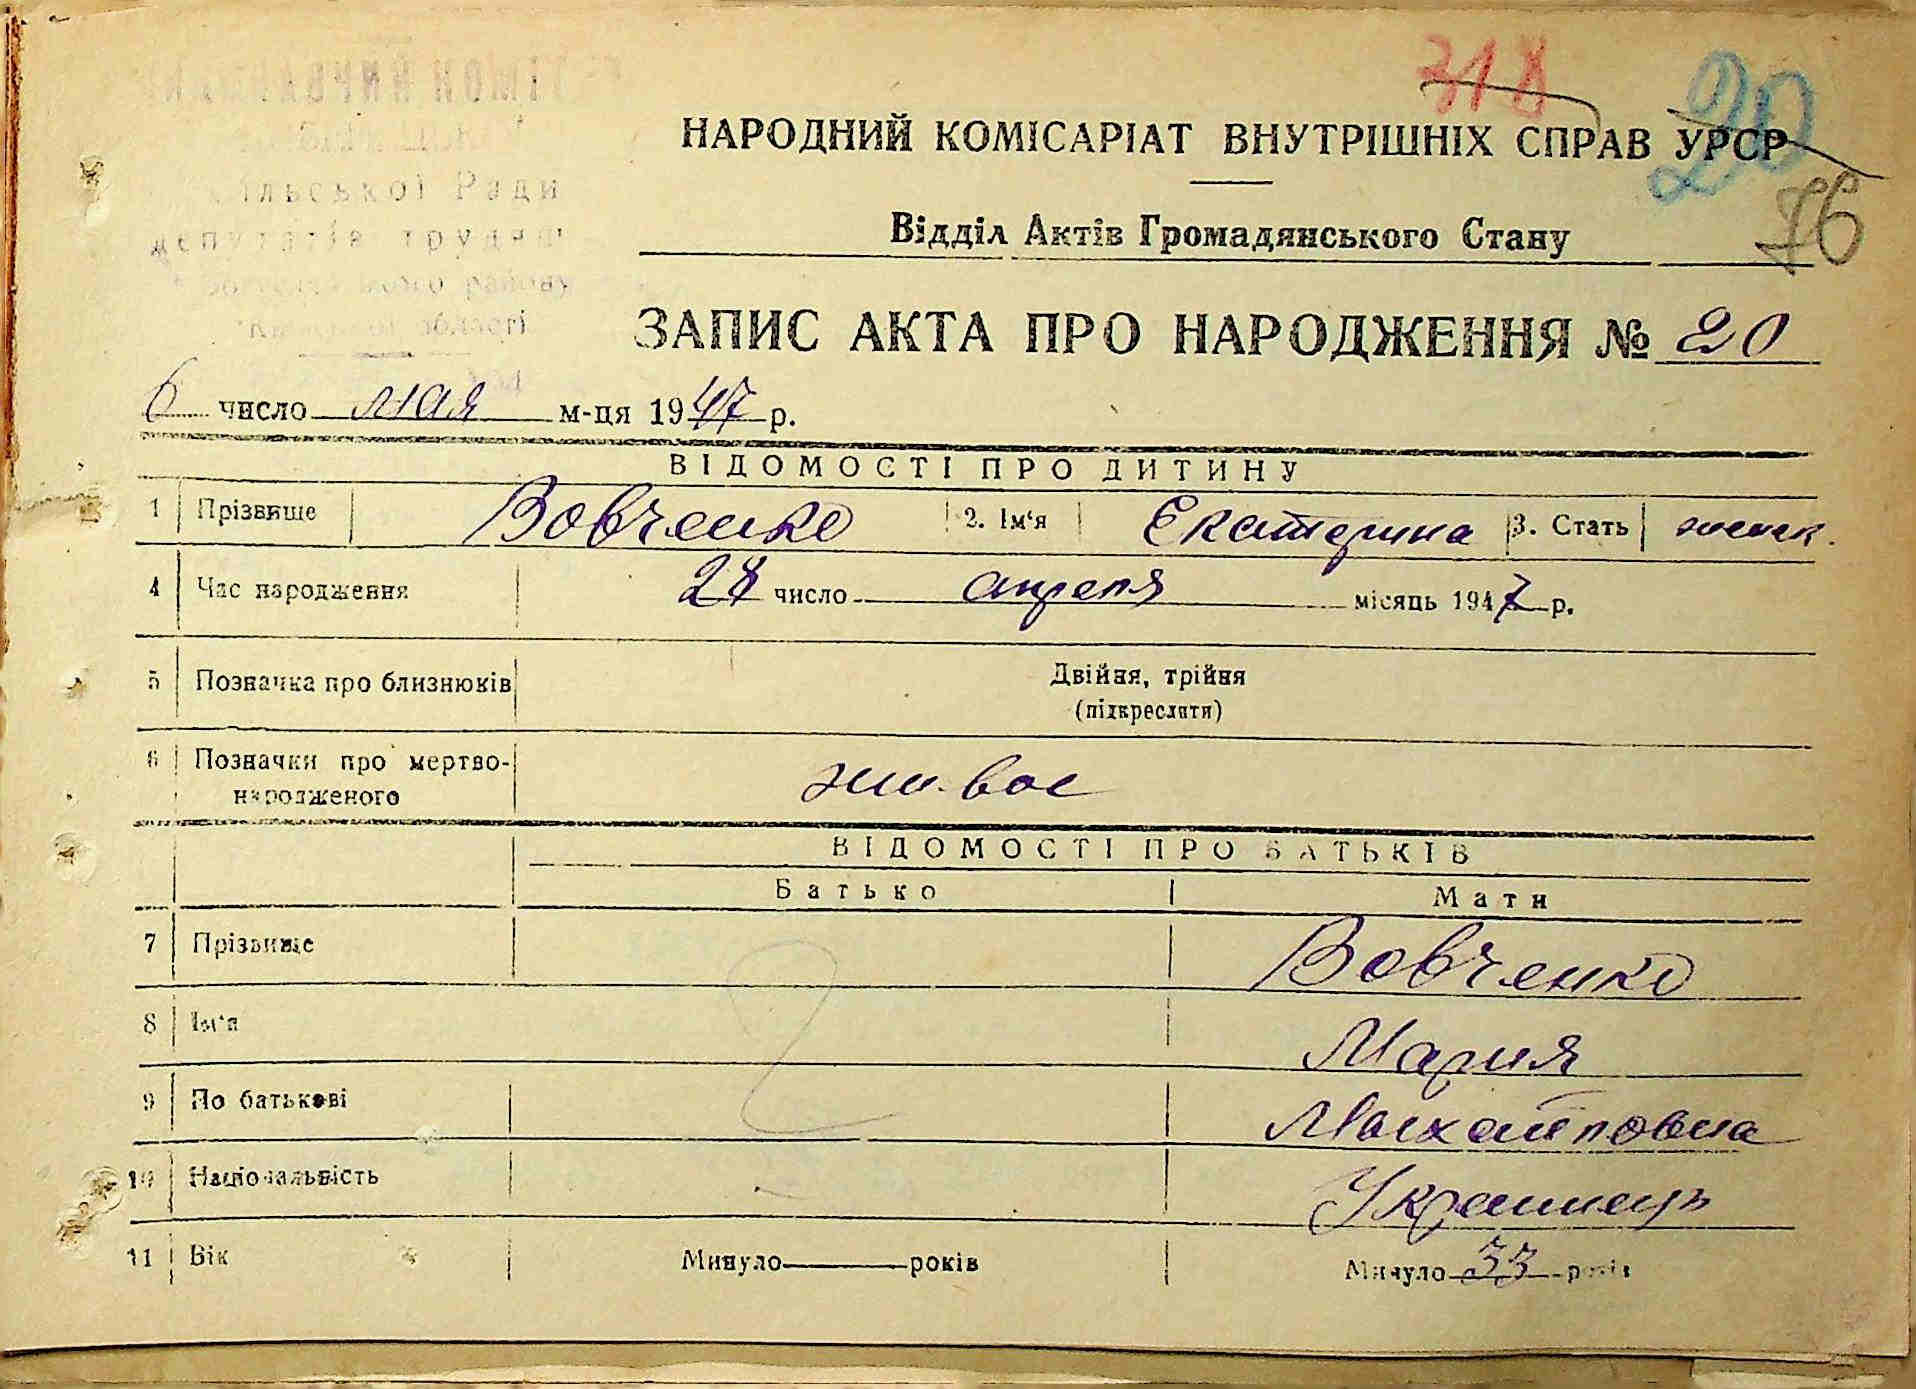 318
20
НАРОДНИЙ КОМІСАРІАТ ВНУТРІШНІХ СПРАВ УРСР
76
Відділ Актів Громадянського Стану
сільської Ради
депутатів трудящ
району
області
ЗАПИС АКТА ПРО НАРОДЖЕННЯ № 20
6 число мая м-ця 1947 р.
ВІДОМОСТІ ПРО ДИТИНУ
1 Прізвище Вовченко 2. Ім'я Екатерина 3. Стать женск.
4 Час народження 28 число апреля місяць 1947 р.
5 Позначка про близнюків Двійня, трійня
(підкреслити)
6 Позначки про мертво-
народженого живое
ВІДОМОСТІ ПРО БАТЬКІВ
Батько Мати
7 Прізвище Вовченко
8 Ім'я Мария
9 По батькові Михайловна
10 Національність Украинець
11 Вік Минуло років Минуло 33 років